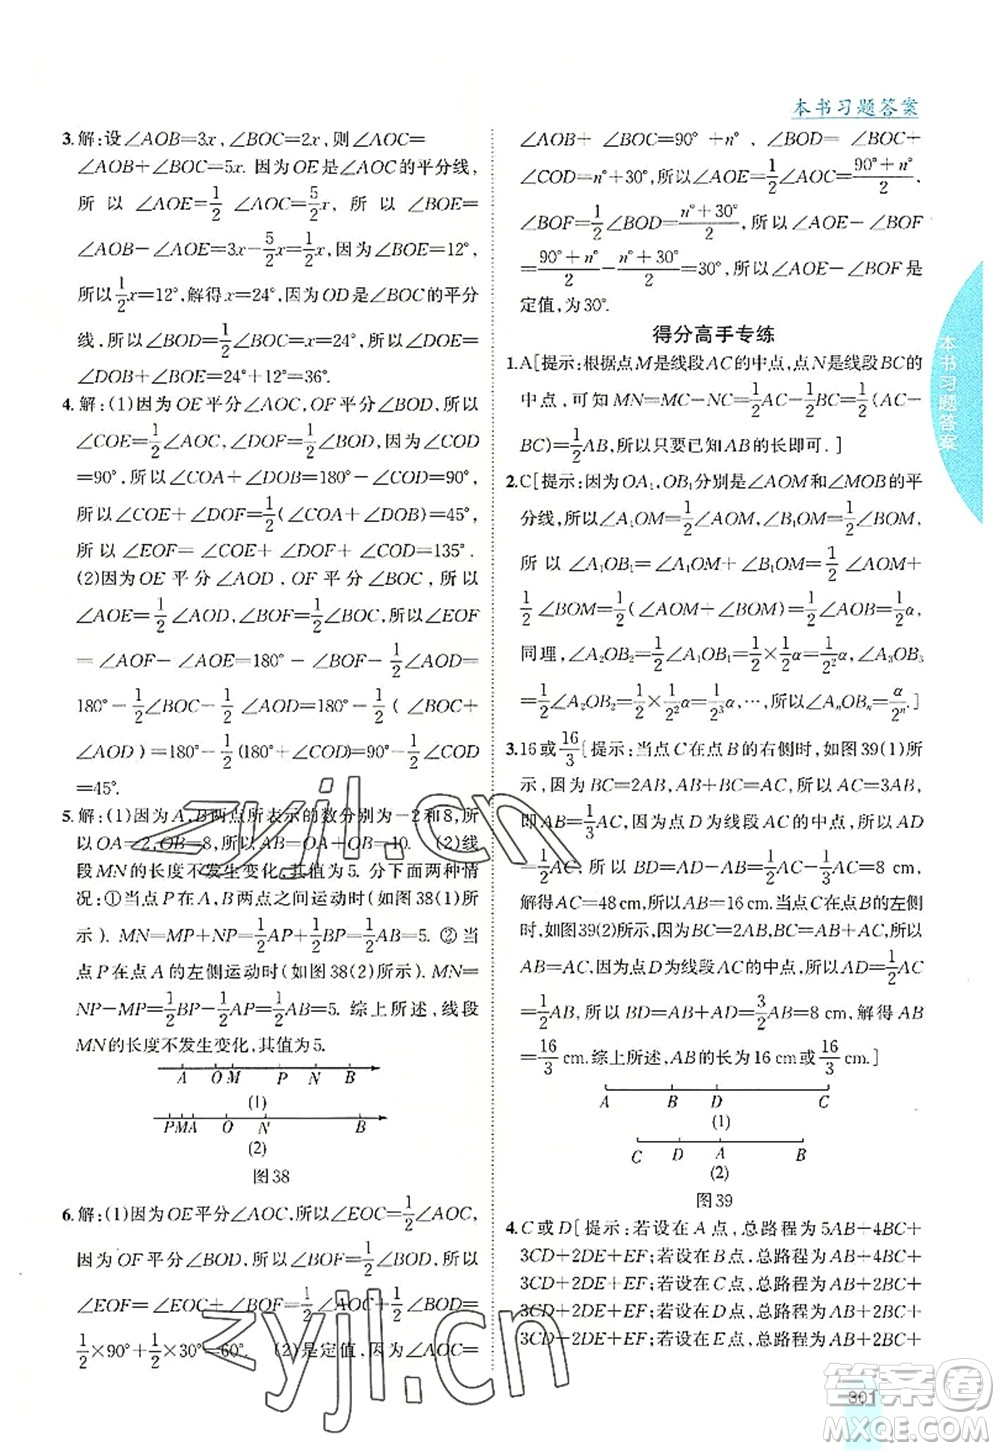 本书习题答案
3.解:设∠AOB=3x,∠BOC=2x,则∠AOC=
∠AOB+∠BOC=5x.因为OE是∠AOC的平分线,
所以∠AOE=1/2∠AOC=5/2x,所以∠BOE=
∠AOB-∠AOE=3x-5/2x=1/2x.因为∠BOE=12°,
所以1/2x=12°,解得x=24°,因为OD是∠BOC的平分
线,所以∠BOD=1/2∠BOC=x=24°,所以∠DOE=
∠BOD+∠BOE=24°+12°=36°.
4.解:(1)因为OE平分∠AOC,OF平分∠BOD,所以
∠COE=1/2∠AOC,∠DOF=1/2∠BOD.因为∠COD
=90°,所以∠COA+∠BOD=180°-∠COD=90°,
所以∠COE+∠DOF=1/2(∠COA+∠BOD)=45°,
所以∠EOF=∠COE+∠DOF+∠COD=135°.
(2)因为OE平分∠AOD,OF平分∠BOC,所以
∠AOE=1/2∠AOD,∠BOF=1/2∠BOC,所以∠EOF
=∠AOF-∠AOE=180°-∠BOF-1/2∠AOD=
180°-1/2∠BOC-1/2∠AOD=180°-1/2(∠BOC+
∠AOD)=180°-1/2(180°+∠COD)=90°-1/2∠COD
=45°.
5.解:(1)因为A,B两点所表示的数分别为-2和8,所
以OA=2,OB=8,所以AB=OA+OB=10. (2)线
段MN的长度不发生变化,其值为5.分下面两种情
况:①当点P在A,B两点之间运动时(如图38(1)所
示).MN=MP+NP=1/2AP+1/2BP=1/2AB=5.②当
点P在点A的左侧运动时(如图38(2)所示).MN=
NP-MP=1/2BP-1/2AP=1/2AB=5.综上所述,线段
MN的长度不发生变化,其值为5.
A O M P N B
(1)
PMA O N B
(2)
图38
6.解:(1)因为OE平分∠AOC,所以∠EOC=1/2∠AOC,
因为OF平分∠BOD,所以∠BOF=1/2∠BOD,所以
∠EOF=∠EOC+∠BOF=1/2∠AOC+1/2∠BOD=
1/2×90°+1/2×30°=60°. (2)是定值,因为∠AOC=
∠AOB+∠BOC=90°+n°,∠BOD=∠BOC+
∠COD=n°+30°,所以∠AOE=1/2∠AOC=(90°+n°)/2,
∠BOF=1/2∠BOD=(n°+30°)/2,所以∠AOE-∠BOF
=(90°+n°)/2-(n°+30°)/2=30°,所以∠AOE-∠BOF是
定值,为30°.
得分高手专练
1.A[提示:根据点M是线段AC的中点,点N是线段BC的
中点,可知MN=MC-NC=1/2AC-1/2BC=1/2(AC-
BC)=1/2AB,所以只要已知AB的长即可.]
2.C[提示:因为OA₁,OB₁分别是∠AOM和∠MOB的平
分线,所以∠A₁OM=1/2∠AOM,∠B₁OM=1/2∠BOM,
所以∠A₁OB₁=∠A₁OM+∠B₁OM=1/2∠AOM+
1/2∠BOM=1/2(∠AOM+∠BOM)=1/2∠AOB=1/2α,
同理,∠A₂OB₂=1/2∠A₁OB₁=1/2×1/2α=1/2²α,∠A₃OB₃
=1/2∠A₂OB₂=1/2×1/2²α=1/2³α,…,所以∠AₙOBₙ=α/2ⁿ.]
3.16或16/3[提示:当点C在点B的右侧时,如图39(1)所
示,因为BC=2AB,AB+BC=AC,所以AC=3AB,
即AB=1/3AC.因为点D为线段AC的中点,所以AD
=1/2AC,所以BD=AD-AB=1/2AC-1/3AC=8 cm,
解得AC=48 cm,所以AB=16 cm.当点C在点B的左侧
时,如图39(2)所示,因为BC=2AB,AB+AC=BC,所以
AC=AB.因为点D为线段AC的中点,所以AD=1/2AC
=1/2AB,所以BD=AB+AD=3/2AB=8 cm,所以AB
=16/3 cm.综上所述,AB的长为16 cm或16/3 cm.]
A B D C
(1)
C D A B
(2)
图39
4.C或D[提示:若设在A点,总路程为5AB+4BC+
3CD+2DE+EF;若设在B点,总路程为AB+4BC+
3CD+2DE+EF;若设在C点,总路程为AB+2BC+
3CD+2DE+EF;若设在D点,总路程为AB+2BC+
3CD+2DE+EF;若设在E点,总路程为AB+2BC+
本书习题答案
301
zyjl.cn
zyjl.cn
答案圈
MXQE.COM